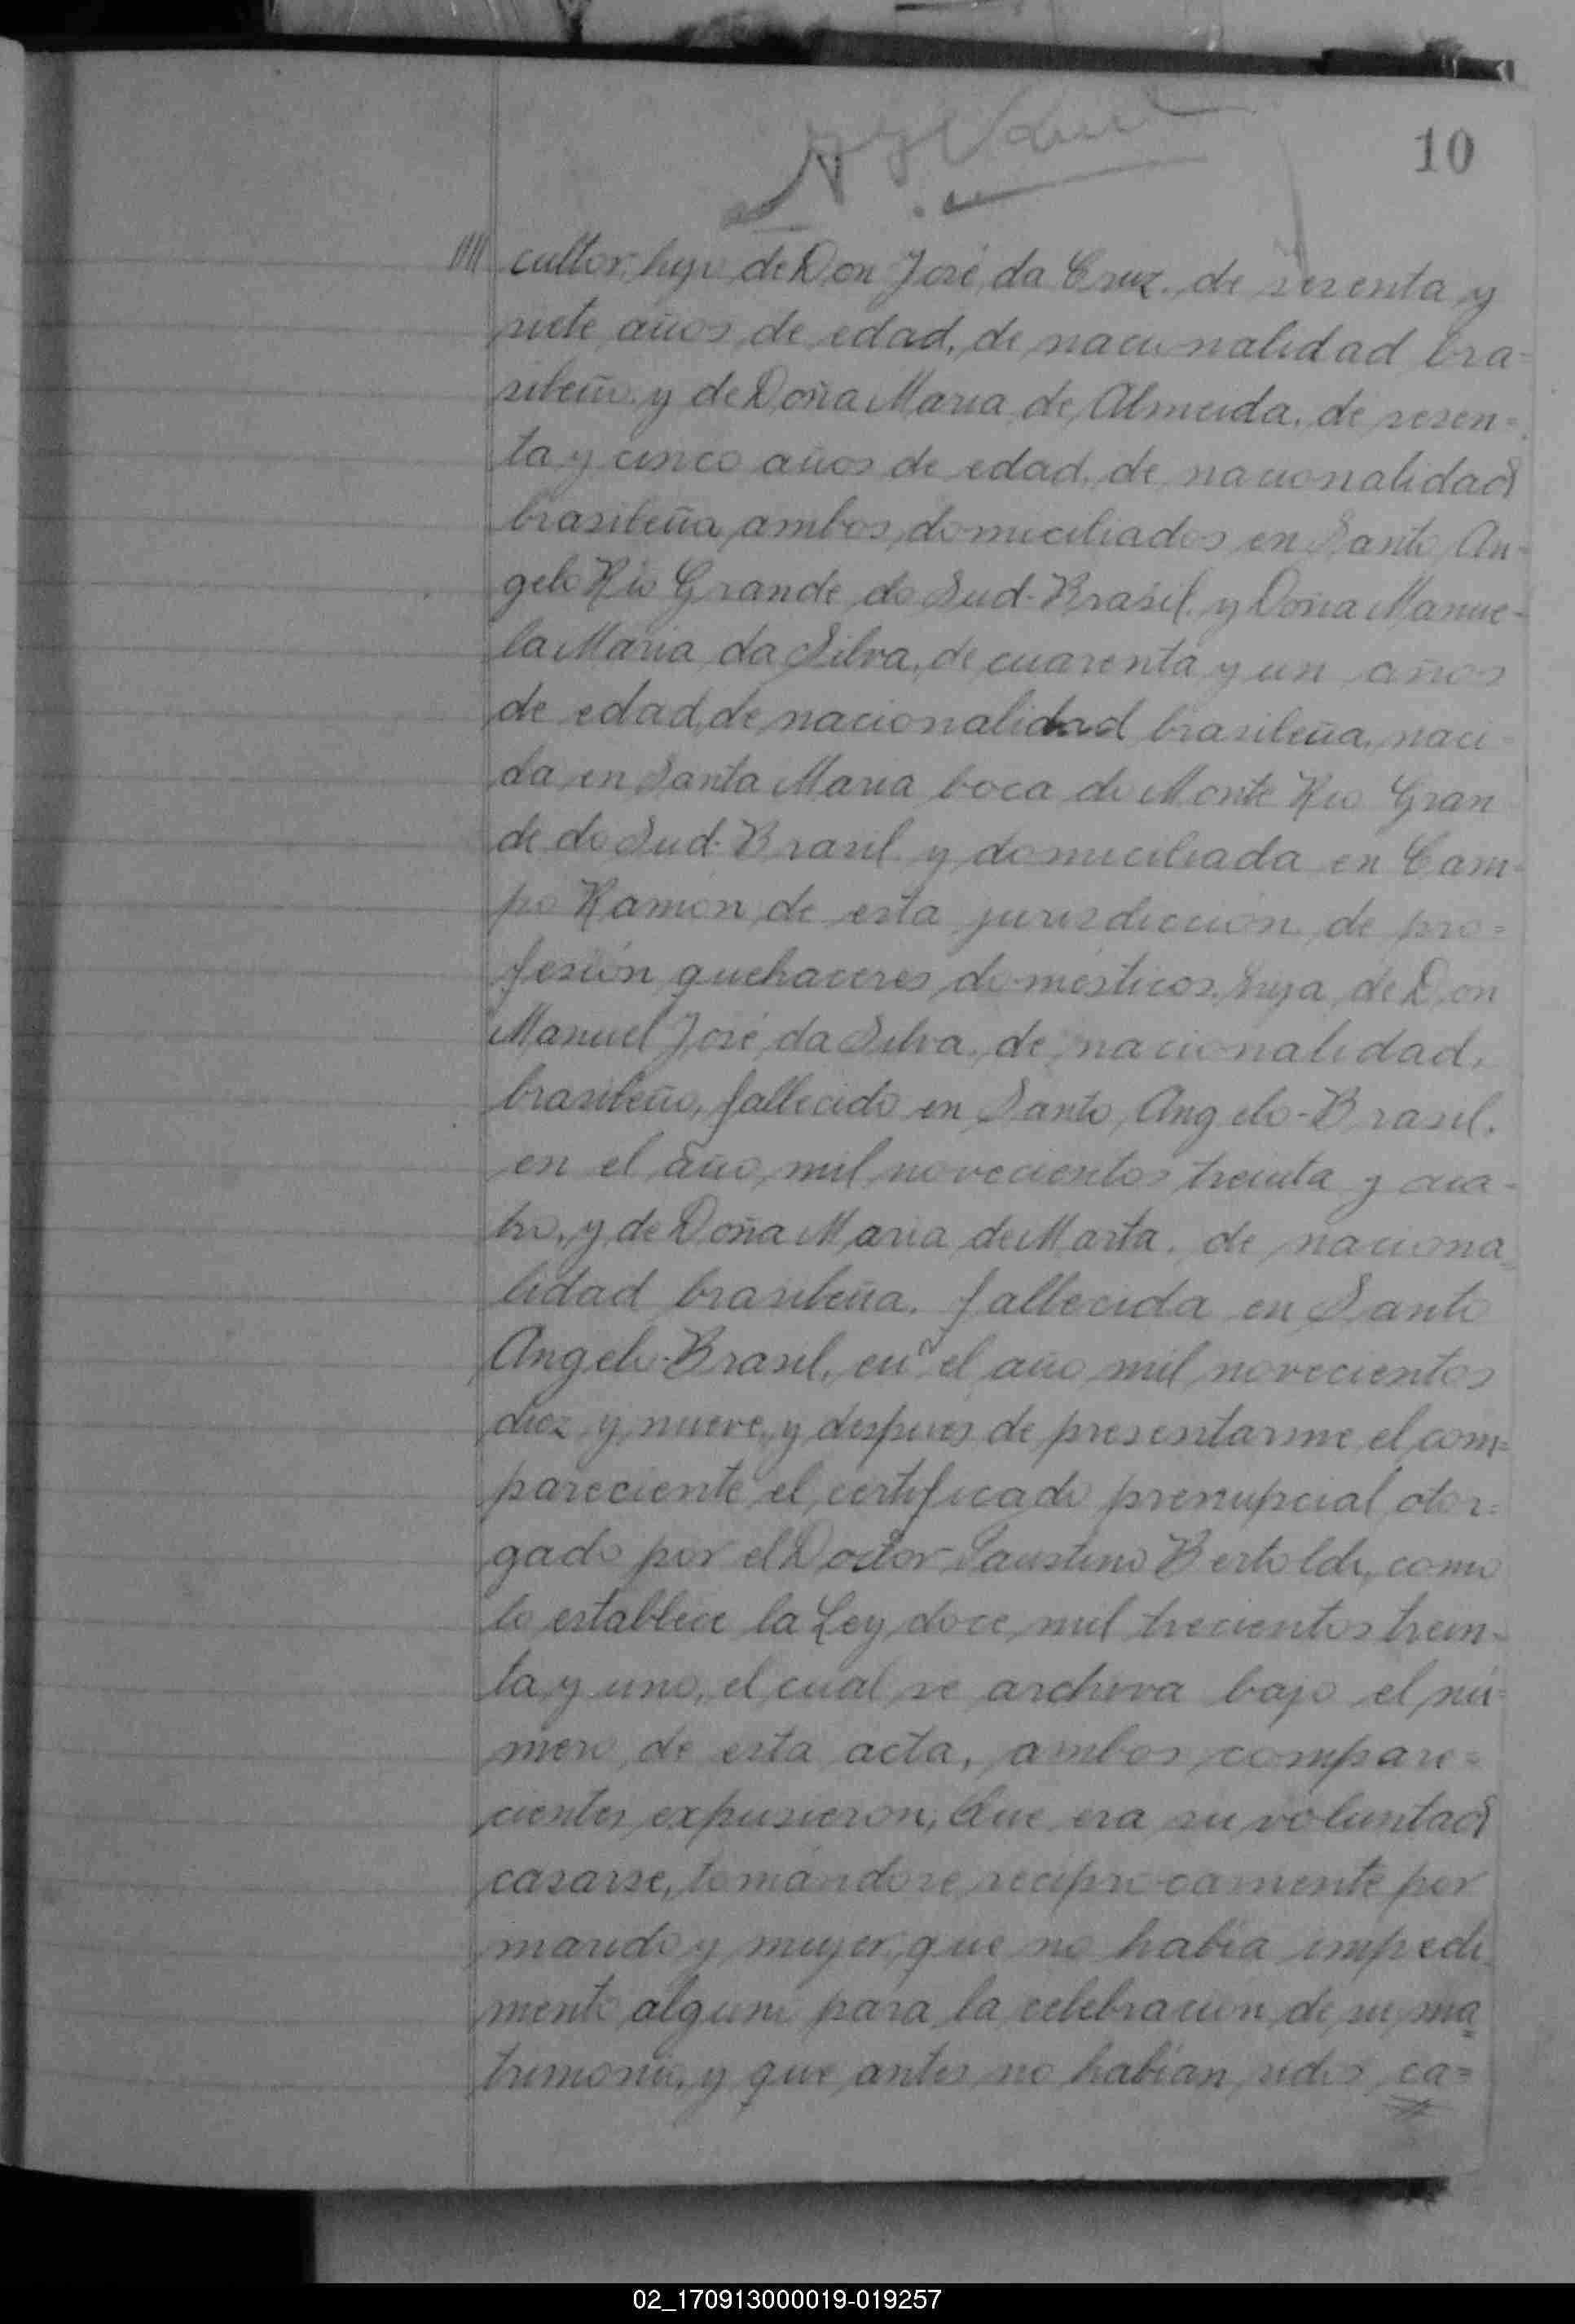 10
cultor, hijo de Don José da Cruz, de sesenta y
siete años de edad, de nacionalidad bra=
sileño y de Doña Maria de Almeida, de sesen=
ta y cinco años de edad, de nacionalidad
brasileña, ambos domiciliados en Santo An-
gelo Rio Grande do Sud-Brasil, y Doña Manue-
la Maria da Silva, de cuarenta y un años
de edad, de nacionalidad brasileña, naci-
da en Santa Maria boca do Monte Rio Gran
de do Sud-Brasil y domiciliada en Cam-
po Ramón de esta jurisdicción, de pro=
fesión quehaceres domésticos, hija de Don
Manuel José da Silva, de nacionalidad,
brasileño, fallecido en Santo Angelo-Brasil,
en el año mil novecientos treinta y cua-
tro, y de Doña Maria de Marta, de naciona
lidad brasileña, fallecida en Santo
Angelo-Brasil, en el año mil novecientos
diez y nueve, y después de presentarme el com=
pareciente el certificado prenupcial otor=
gado por el Doctor Faustino Bertoldi, como
lo establece la Ley doce mil trecientos trein-
ta y uno, el cual se archiva bajo el nú=
mero de esta acta, ambos compare=
cientes expusieron, Que era su voluntad
casarse, tomándose recíprocamente por
marido y mujer, que no había impedi
mento alguno para la celebración de su ma
trimonio, y que antes no habían sidos ca=
02_170913000019-019257